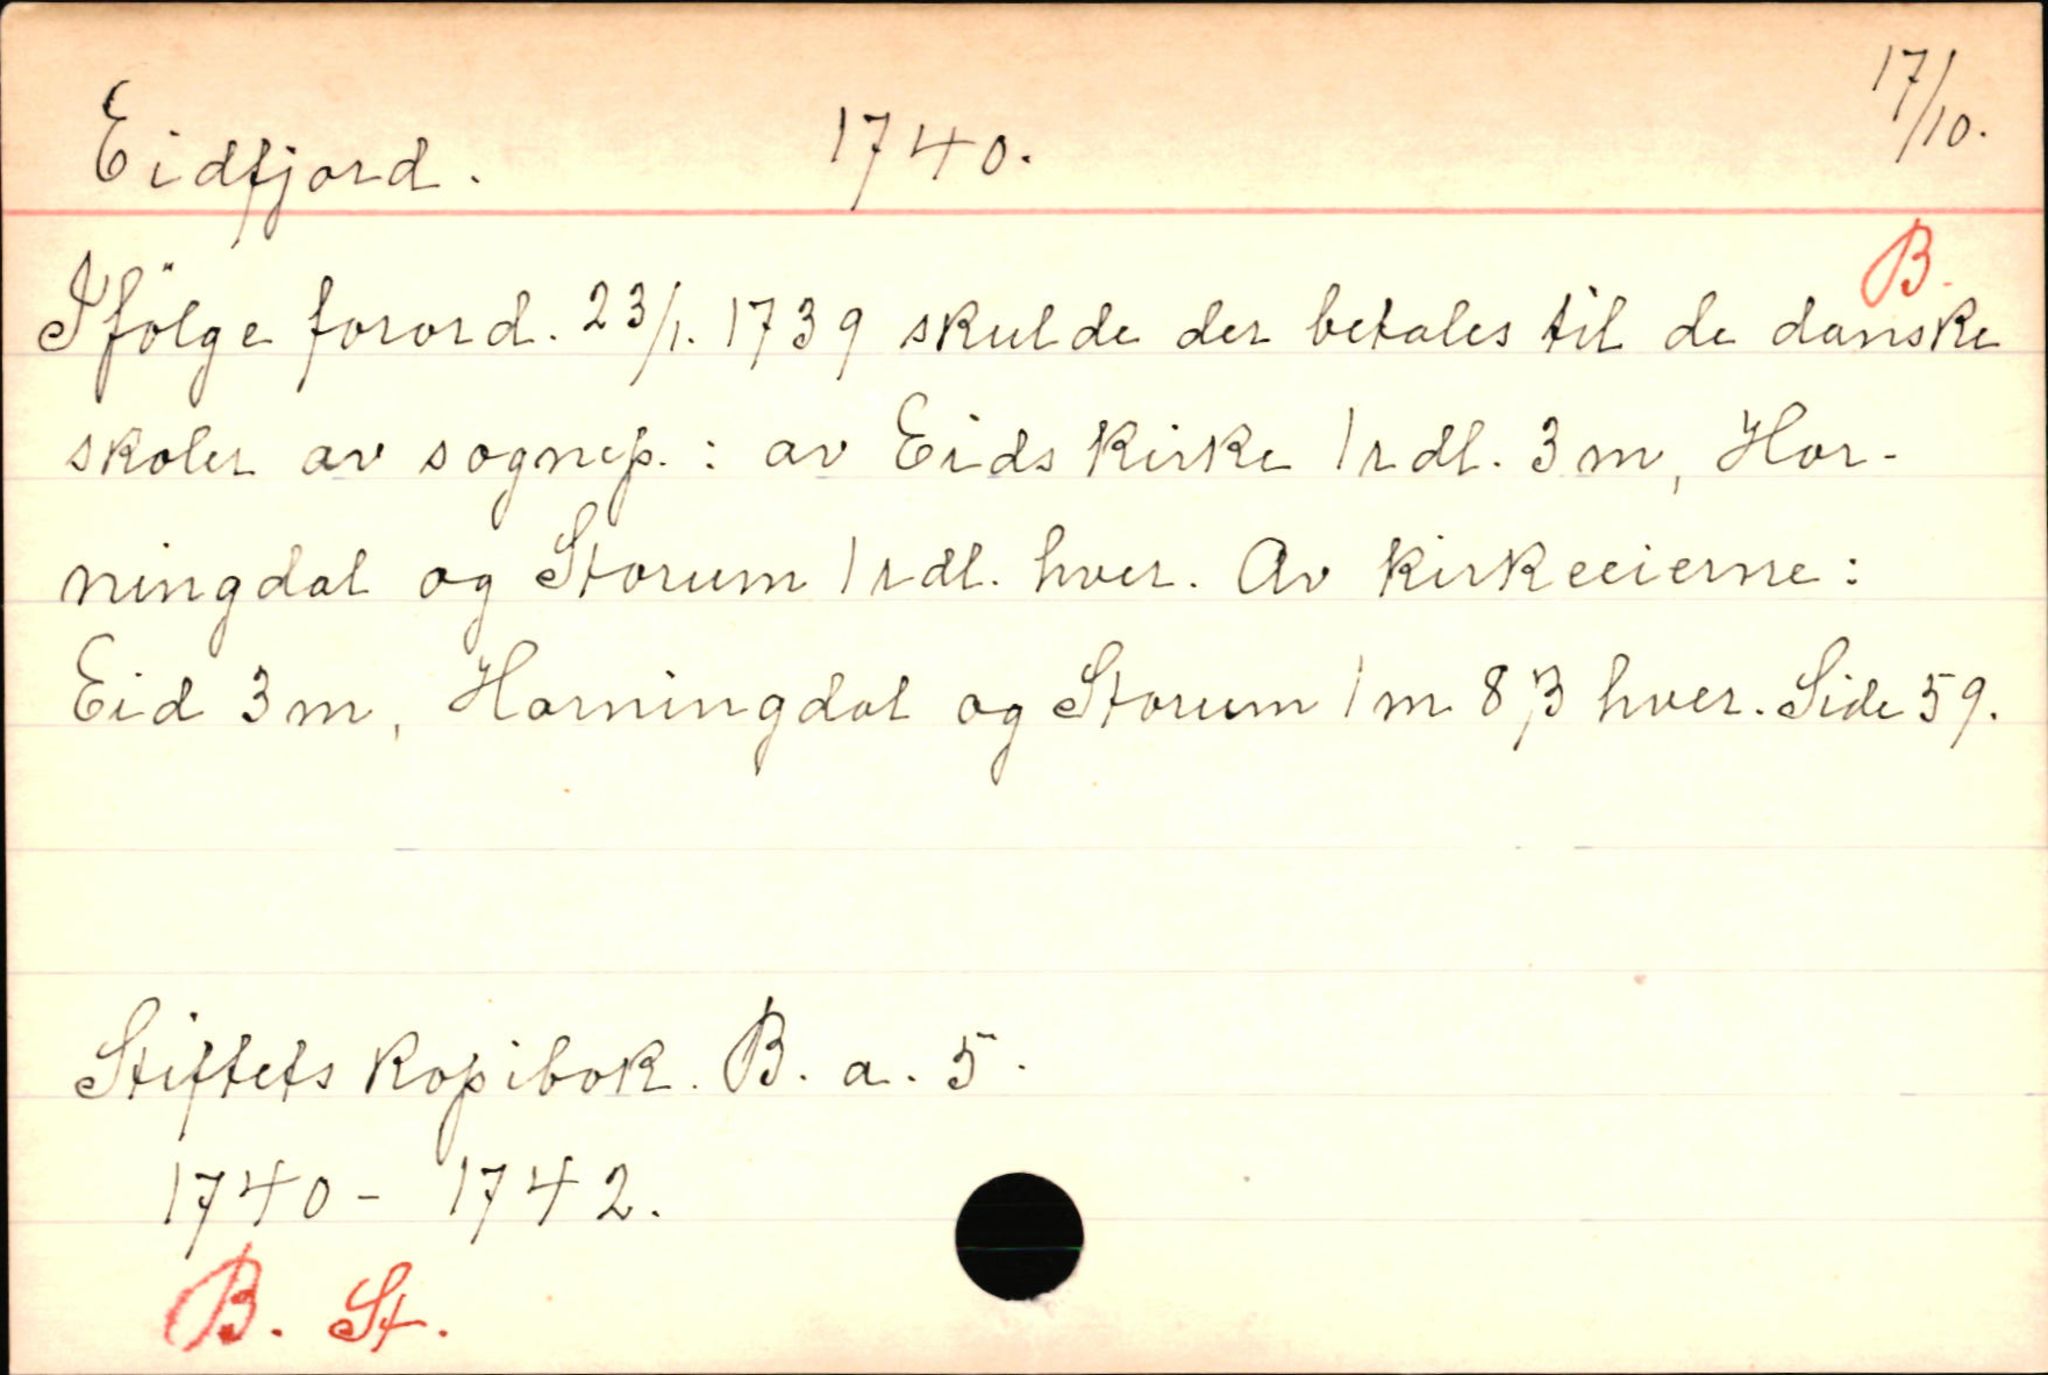 Eidfjord. 1740. 17/10.
B.
Ifölge forord. 23/1. 1739 skulde der betales til de danske
skoler av sognep.: av Eids kirke 1 rdl. 3 m, Hor-
ningdal og Storum 1 rdl. hver. Av kirkeeierne:
Eid 3 m, Horningdal og Storum 1 m 8 β hver. Side 59.
Stiftets kopibok. B. a. 5.
1740 - 1742.
B. St.